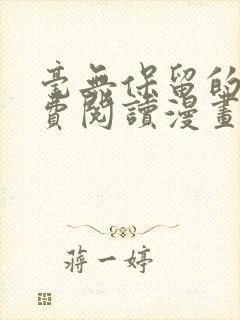 毫無保留的
費閱讀漫畫
蔣一婷